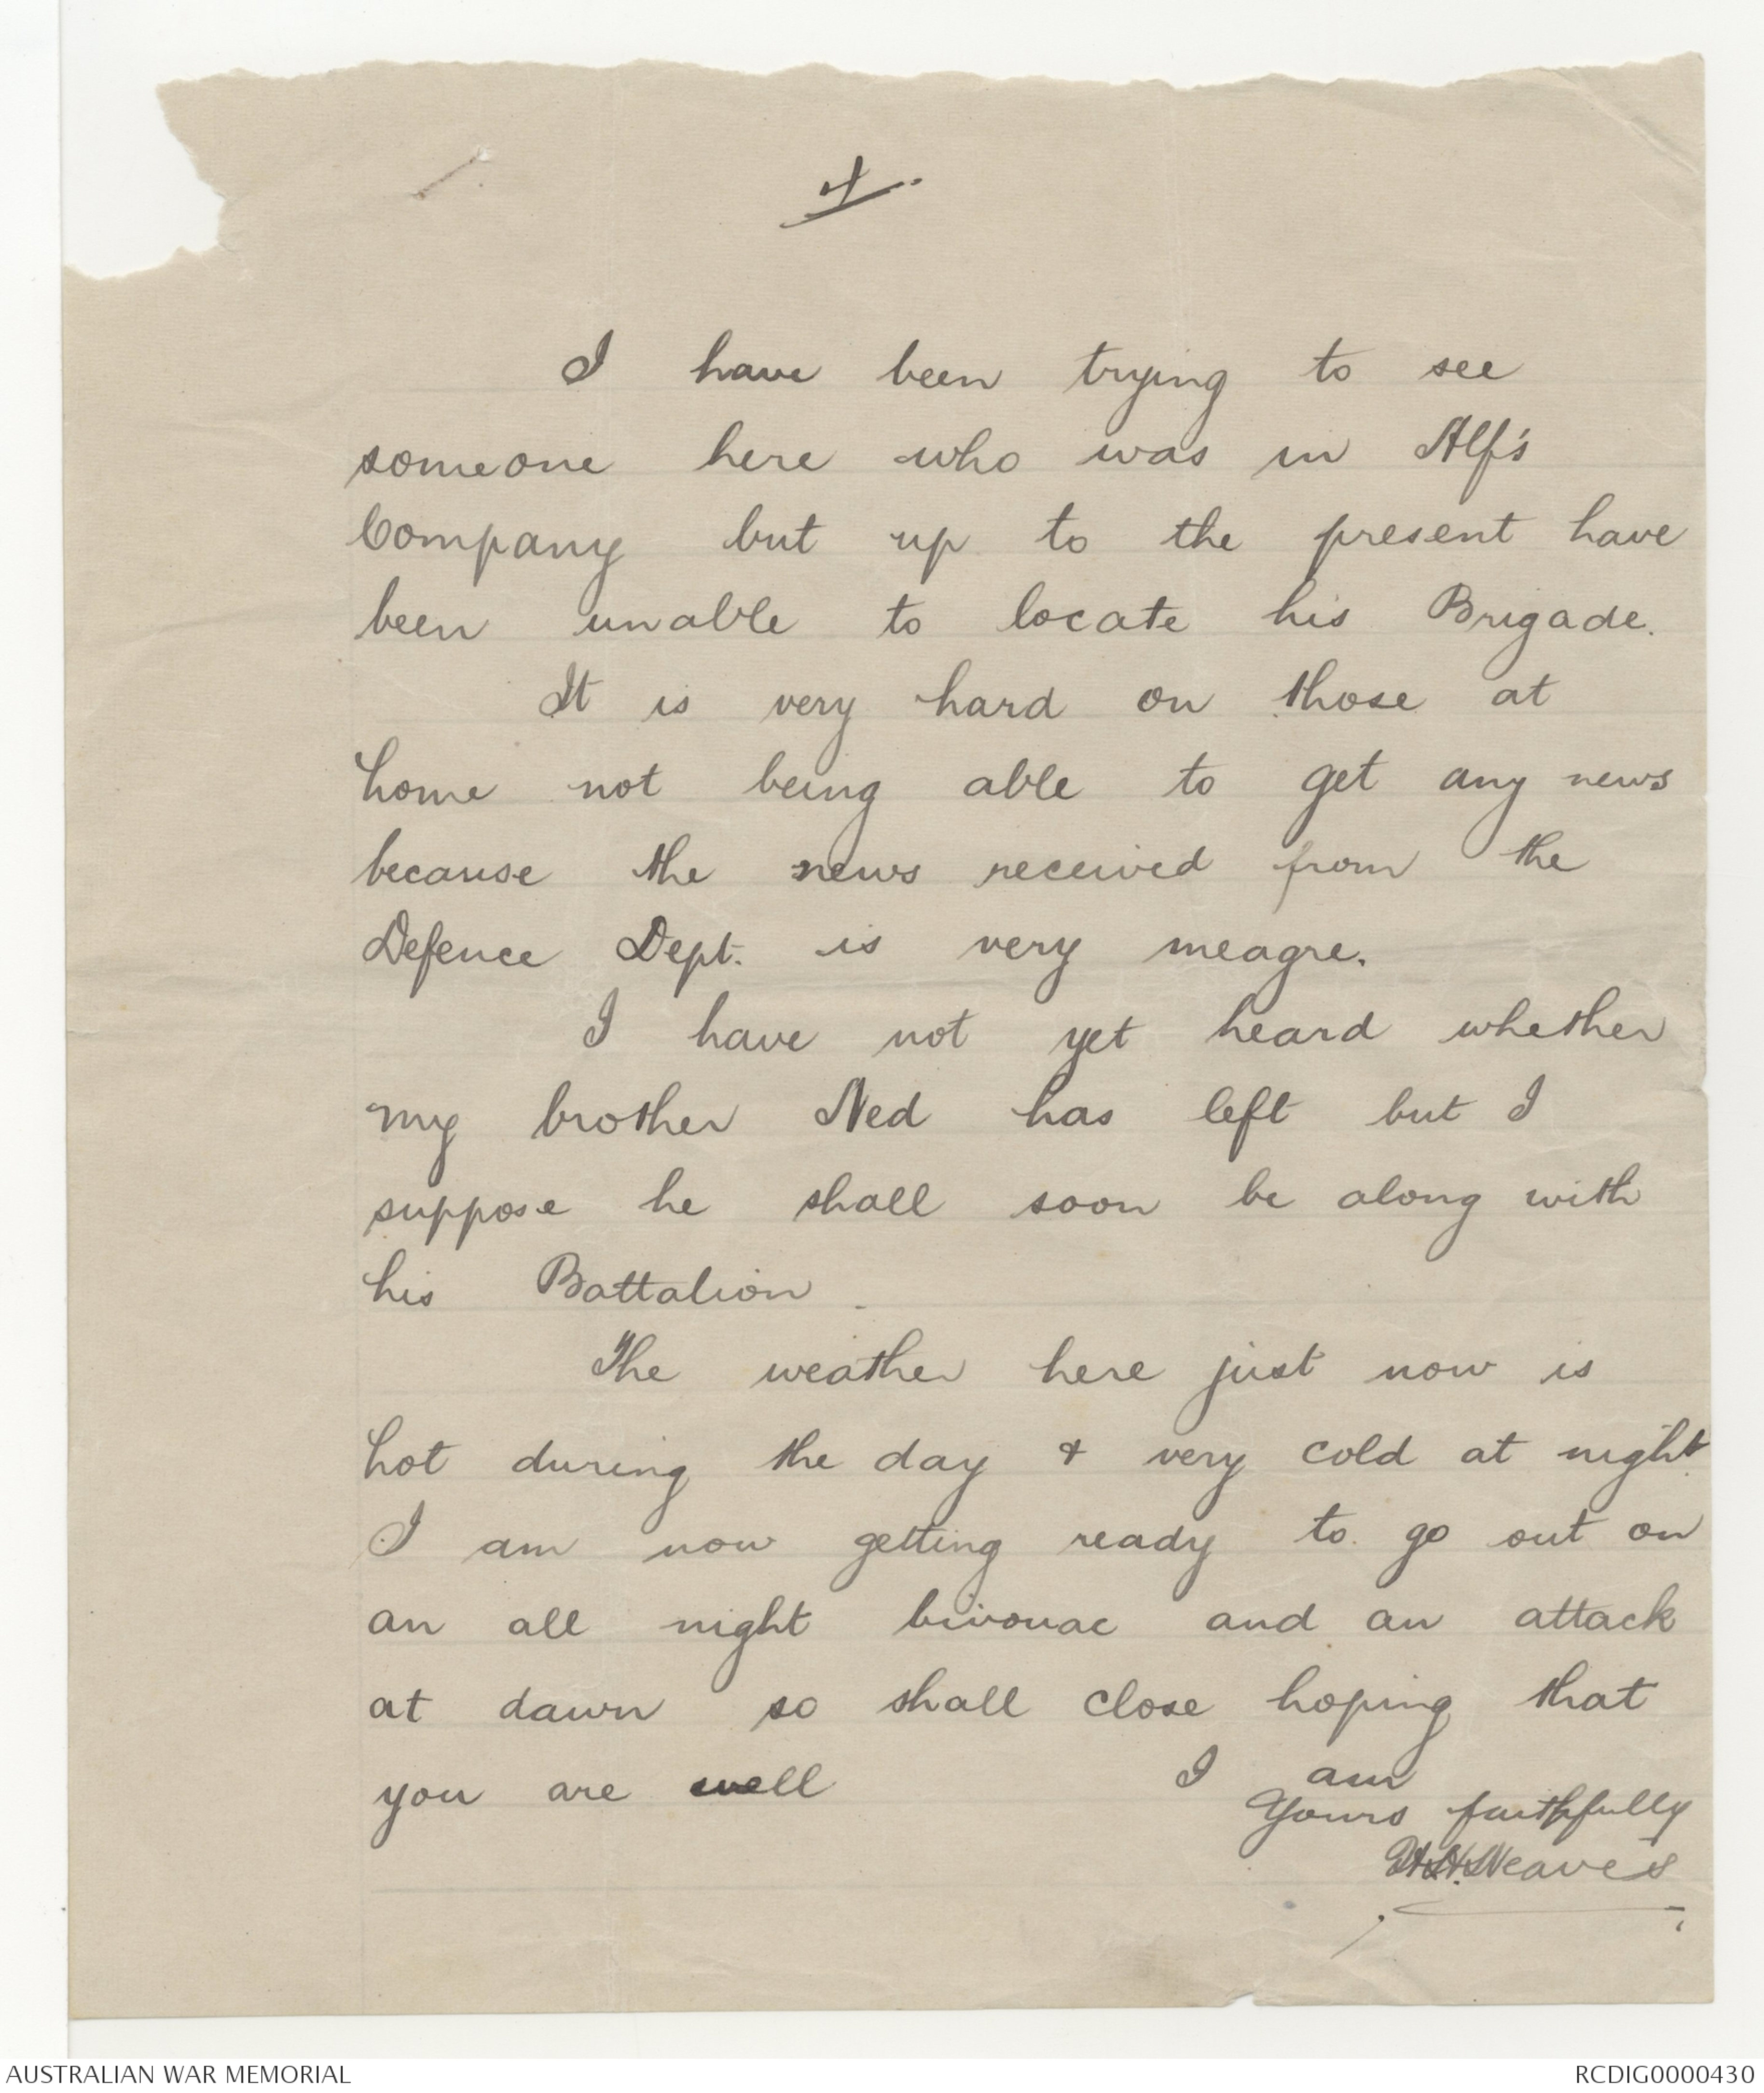 4.
I have been trying to see
someone here who was in Alf's
Company but up to the present have
been unable to locate his Brigade.
It is very hard on those at
home not being able to get any news
because the news received from the
Defence Dept. is very meagre.
I have not yet heard whether
my brother Ned has left but I
suppose he shall soon be along with
his Battalion.
The weather here just now is
hot during the day & very cold at night
I am now getting ready to go out on
an all night bivouac and an attack
at dawn so shall close hoping that
you are well I am
Yours faithfully
Neaves
AUSTRALIAN WAR MEMORIAL
RCDIG0000430